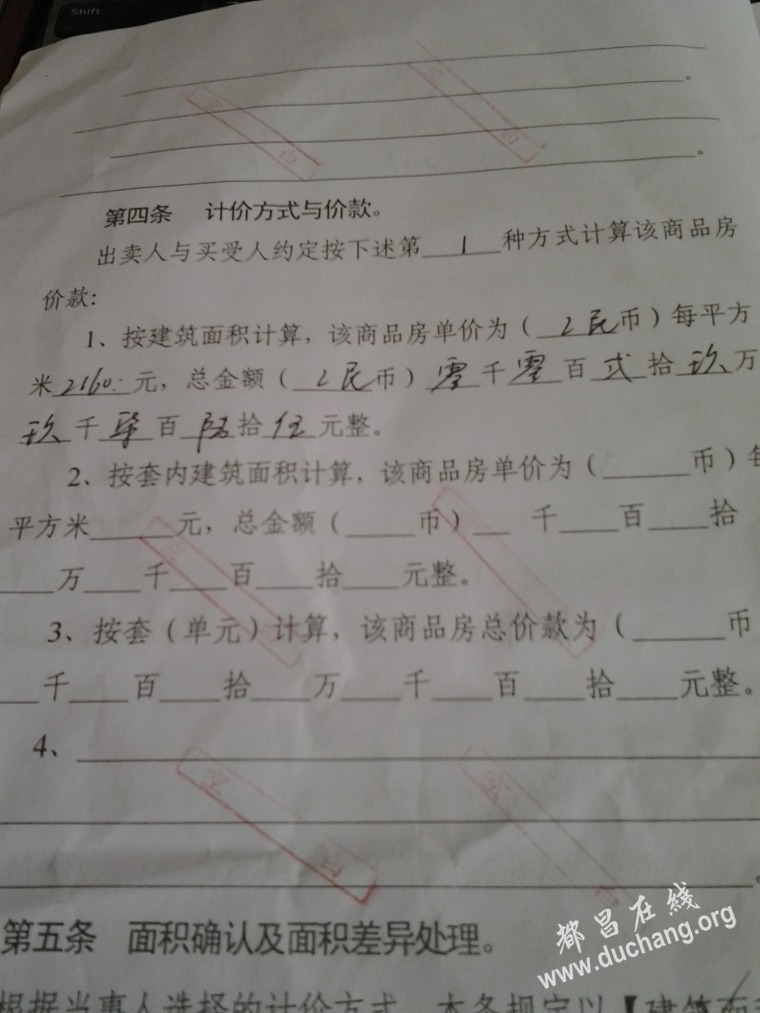 Shift
空白
空白
第四条 计价方式与价款。
出卖人与买受人约定按下述第 1 种方式计算该商品房
价款：
1、按建筑面积计算，该商品房单价为（ 人民币）每平方
米2160.元，总金额（人民币）零千零百弍拾玖万
玖千柒百陆拾伍元整。
2、按套内建筑面积计算，该商品房单价为（______币）每
平方米______元，总金额（_____币）__ 千____百____拾
____万____千____百____拾____元整。
3、按套（单元）计算，该商品房总价款为（______币
___千____百____拾____万____千____百____拾____元整。
4、
空白
空白
第五条 面积确认及面积差异处理。
根据当事人选择的计价方式，本条规定以【建筑面
都昌在线
www.duchang.org